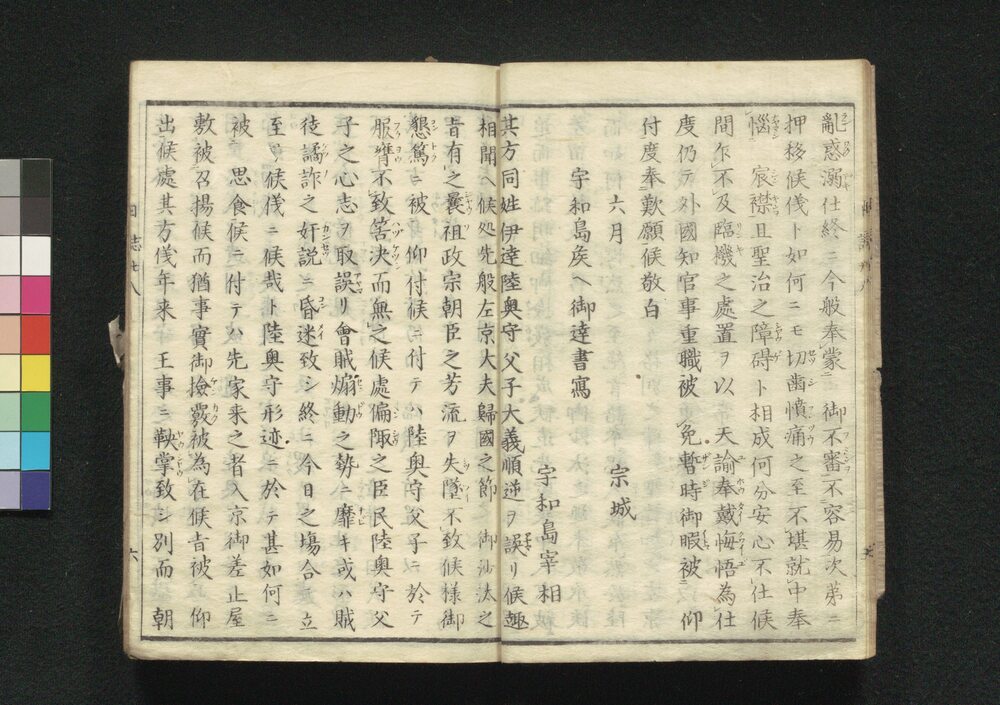 亂惑溺仕終ニ今般奉蒙 御不審不容易次第ニ
押移候儀ト如何ニモ切齒憤痛之至不堪就中奉
惱 宸襟且聖治之障碍ト相成何分安心不仕候
間乍不及臨機之處置ヲ以 天諭奉戴悔悟為仕
度仍テ外國知官事重職被免暫時御暇被 仰
付度奉歎願候敬白
六月 宗城
宇和島矦ヘ御達書寫
宇和島宰相
其方同姓伊達陸奥守父子大義順逆ヲ誤リ候趣
相聞ヘ候処先般左京大夫歸國之節 御沙汰之
旨有之曩祖政宗朝臣之芳流ヲ失墜不致候様御
懇篤ニ被 仰付候ニ付テハ陸奥守父子ニ於テ
服膺不致筈决而無之候處偏陬之臣民陸奥守父
子之心志ヲ取誤リ會賊煽動之勢ニ靡キ或ハ賊
徒譎詐之奸説ニ昏迷致シ終ニ今日之塲合ニ立
至リ候儀ニ候哉ト陸奥守形迹ニ於テ甚如何ニ
被 思食候 付テハ先家来之者入京御差止屋
敷被召揚候而猶事實御撿覈被為在候旨被 仰
出候處其方儀年来 王事ニ鞅掌致シ別而 朝
日誌廿八 六